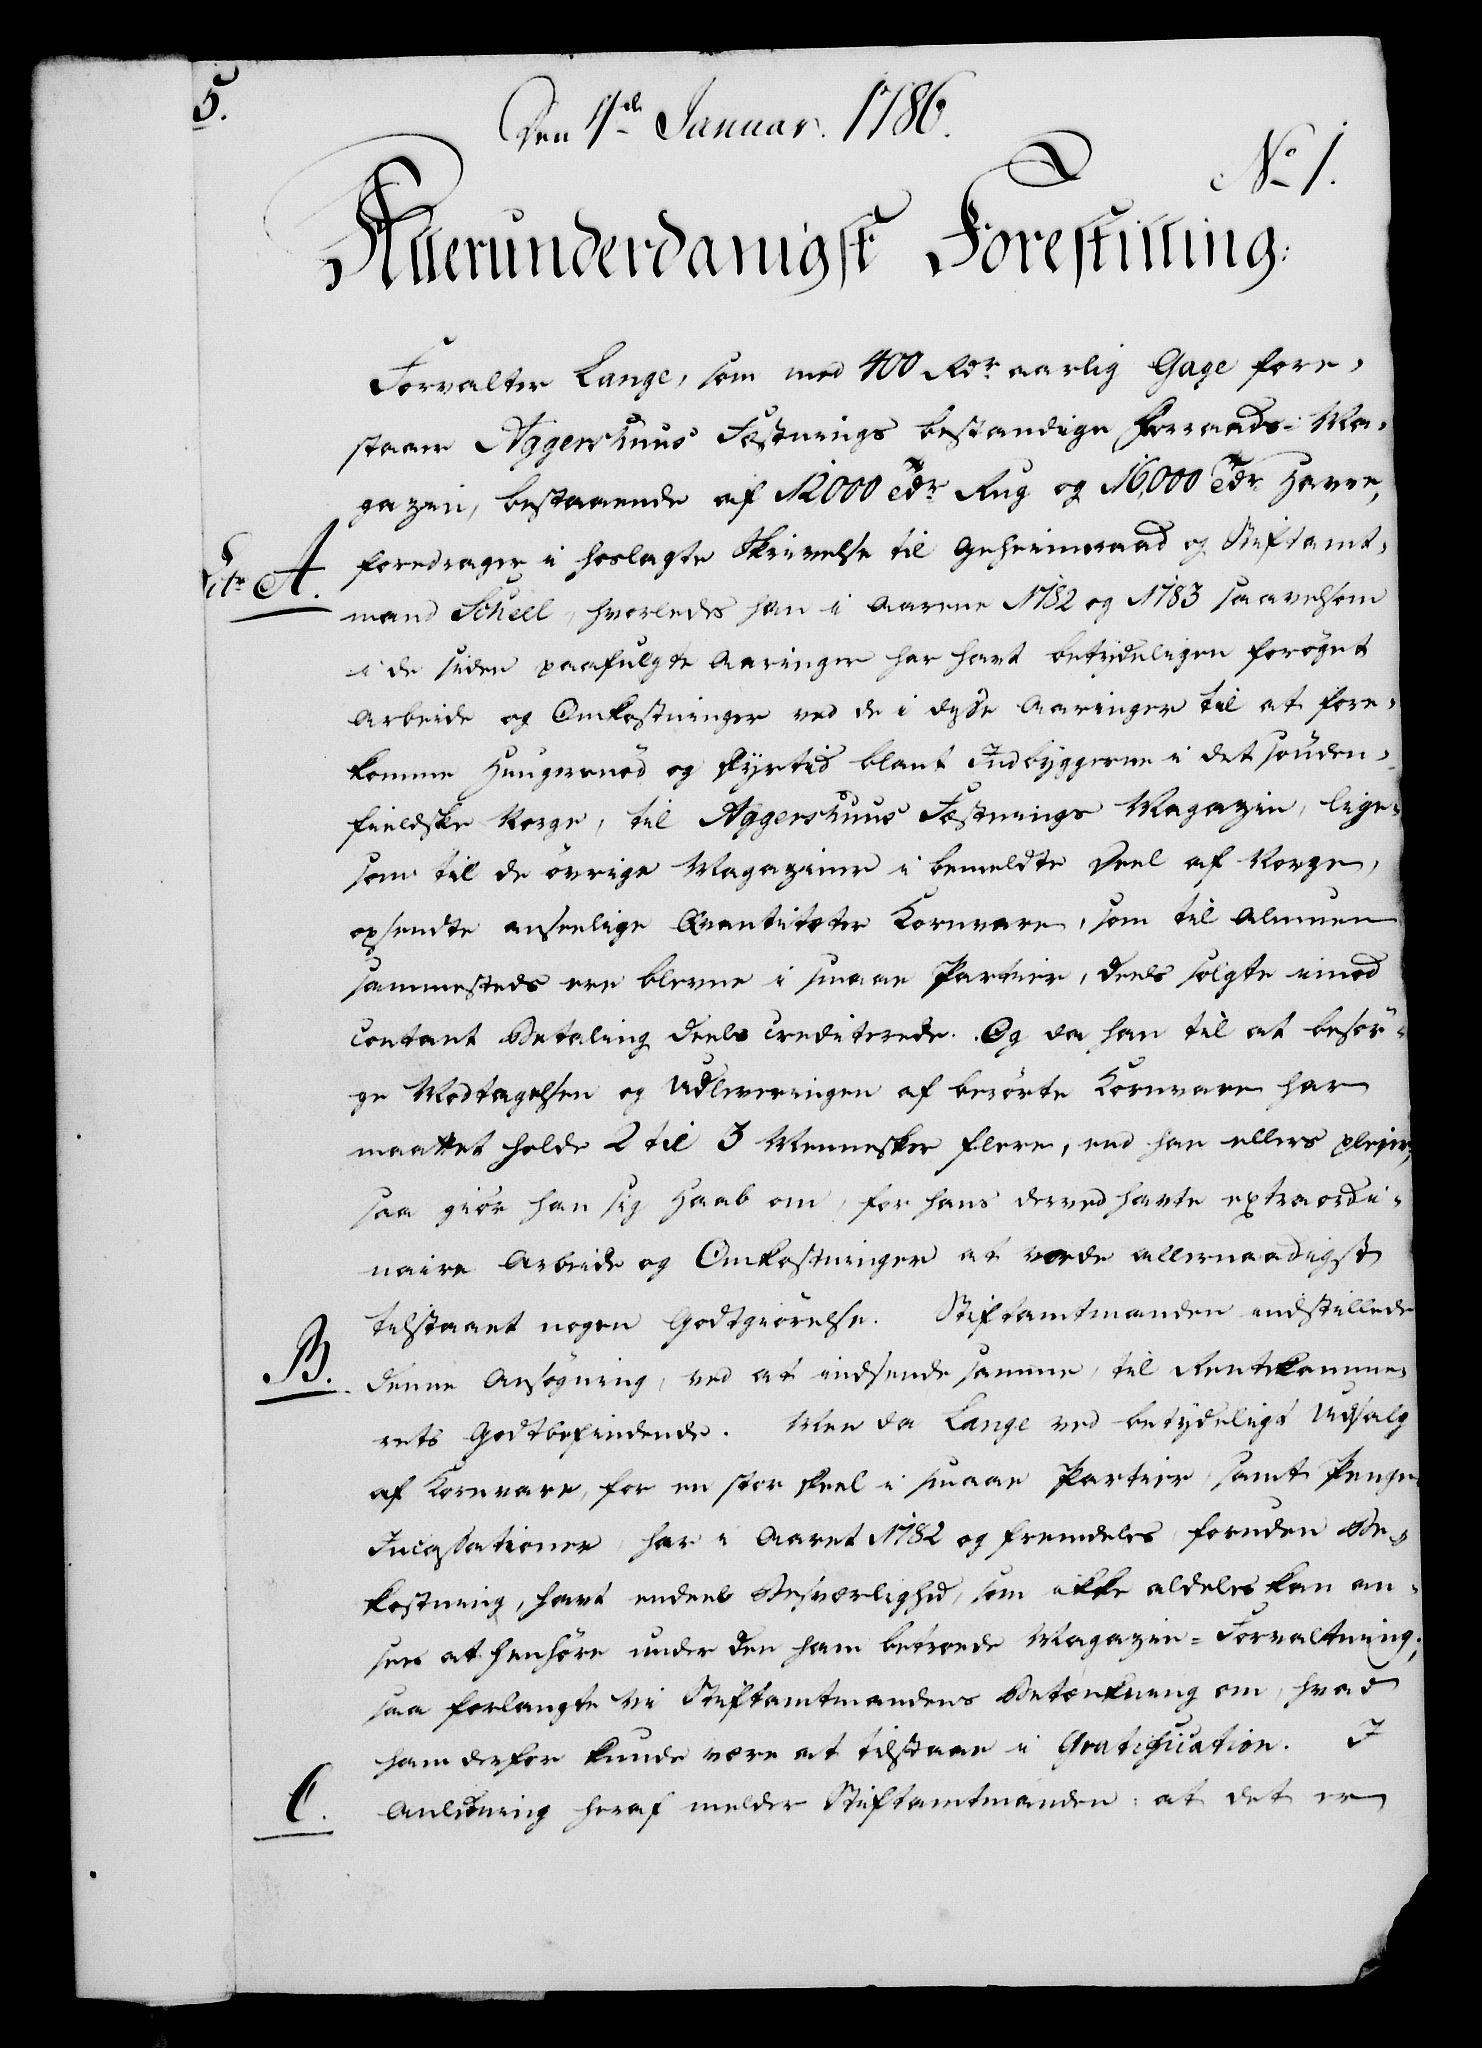 5.
Den 11de Januar. 1786.
No 1.
Allerunderdanigst Forestilling:
Forvalter Lange, som med 400 Rdr aarlig Gage fore-
staaer Aggershuus Fæstnings bestandige Forraads-Ma-
gazin, bestaaende af 12000 Tdr Rug og 16,000 Tdr Havre,
Litr A.
foredrager i hoslagte Skrivelse til Geheimeraad og Stiftamt-
mand Scheel, hvorledes han i Aarene 1782 og 1783 saavelsom
i de siden paafulgte Aaringer har havt betydeligen forøget
Arbeide og Omkostninger ved de i disse Aaringer til at fore-
komme Hungersnød og Dyrtid blant Indbyggerne i det sønden-
fieldske Norge, til Aggershuus Fæstnings Magazin, lige-
som til de øvrige Magaziner i bemeldte Deel af Norge,
opsendte anseelige Qvantiteter Kornvare, som til Almuen
sammesteds ere blevne i smaae Partier, deels solgte imod
contant Betaling deels crediterede. Og da han til at besør-
ge Modtagelsen og Udleveringen af berørte Kornvare har
maattet holde 2 til 3 Mennesker flere, end han ellers pleier,
saa giør han sig Haab om, for hans derved havte extraordi-
naire Arbeide og Omkostninger at vorde allernaadigst
tilstaaet nogen Godtgiørelse. Stiftamtmanden indstillede
B.
denne Ansøgning, ved at indsende samme, til Rentekamme-
rets Godtbefindende. Men da Lange ved betydeligt Udsalg
af Kornvare, for en stor Deel i smaae Partier, samt Penge
Incassationer, har i Aaret 1782 og fremdeles, foruden Be-
kostning, havt endeel Besværlighed, som ikke aldeles kan an-
sees at henhøre under den ham betroede Magazin-Forvaltning;
saa forlangte vi Stiftamtmandens Betænkning om, hvad
ham derfor kunde være at tilstaae i Gratification. I
C.
Anledning heraf melder Stiftamtmanden: at det er